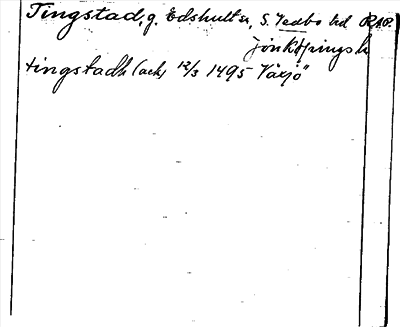 Tingstad, g. Edshult sn, S. Vedbo hd RAP.
Jönköpings l.
tingstadh (ack) 12/3 1495 Växjö"